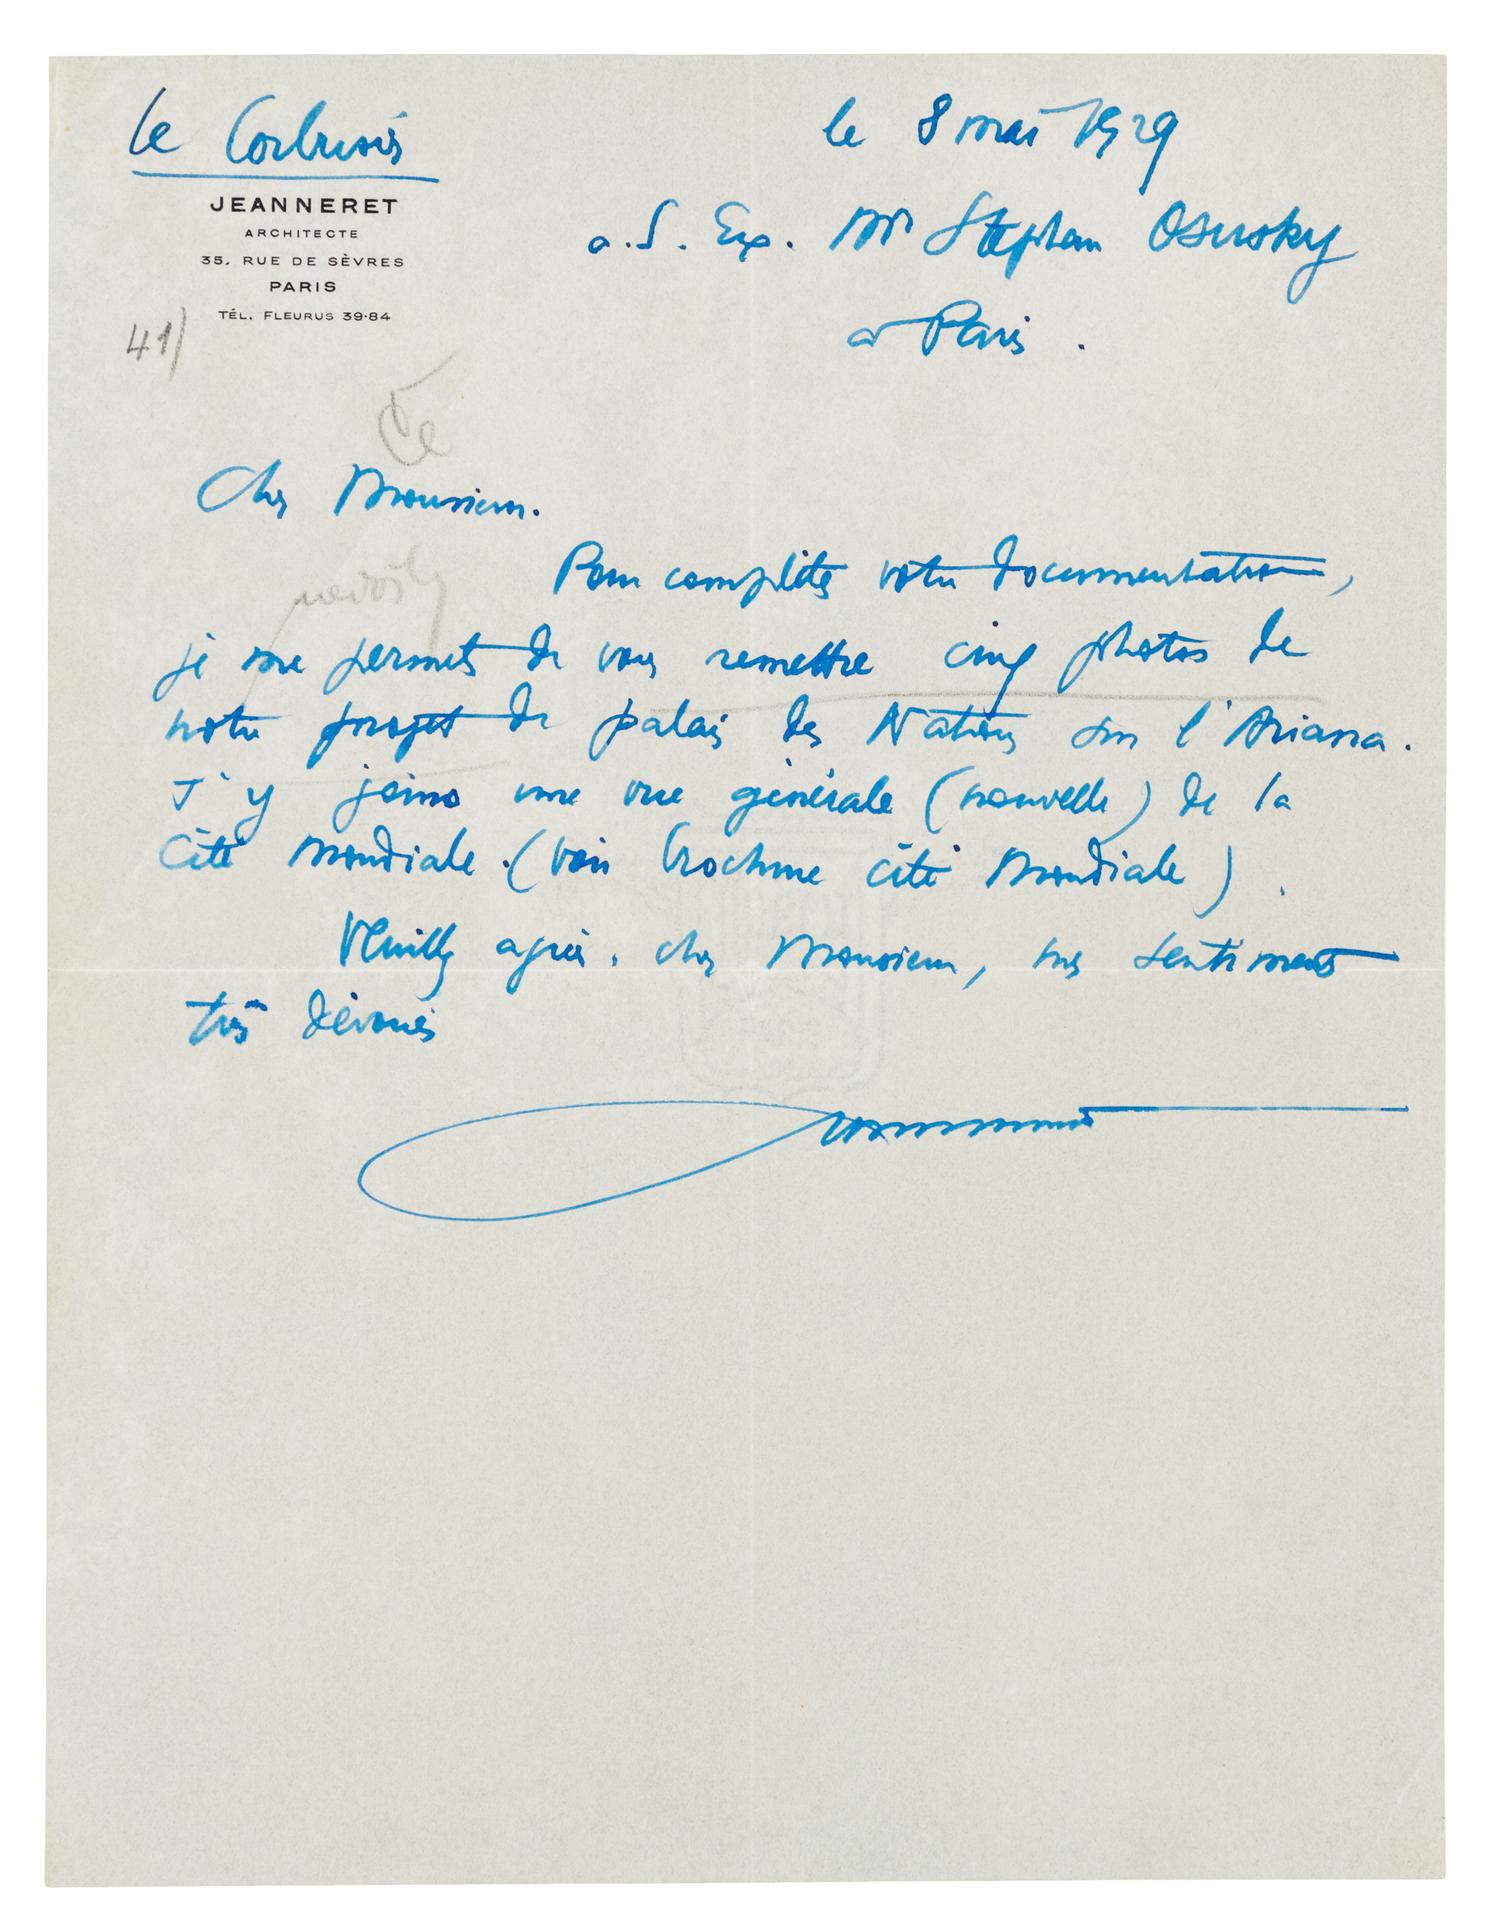 le Corbusier
JEANNERET
ARCHITECTE
35, RUE DE SÈVRES
PARIS
TÉL. FLEURUS 39·84
41)
le 8 mai 1929
a. S. Ex. Mr Stephan Osusky
a Paris.
Cher Monsieur.
Pour compléter votre documentation,
je me permets de vous remettre cinq photos de
notre projet de palais des Nations sur l'Ariana.
J'y joins une vue générale (nouvelle) de la
Cité Mondiale. (voir brochure Cité Mondiale).
Veuillez agréer, cher Monsieur, mes sentiments
très dévoués